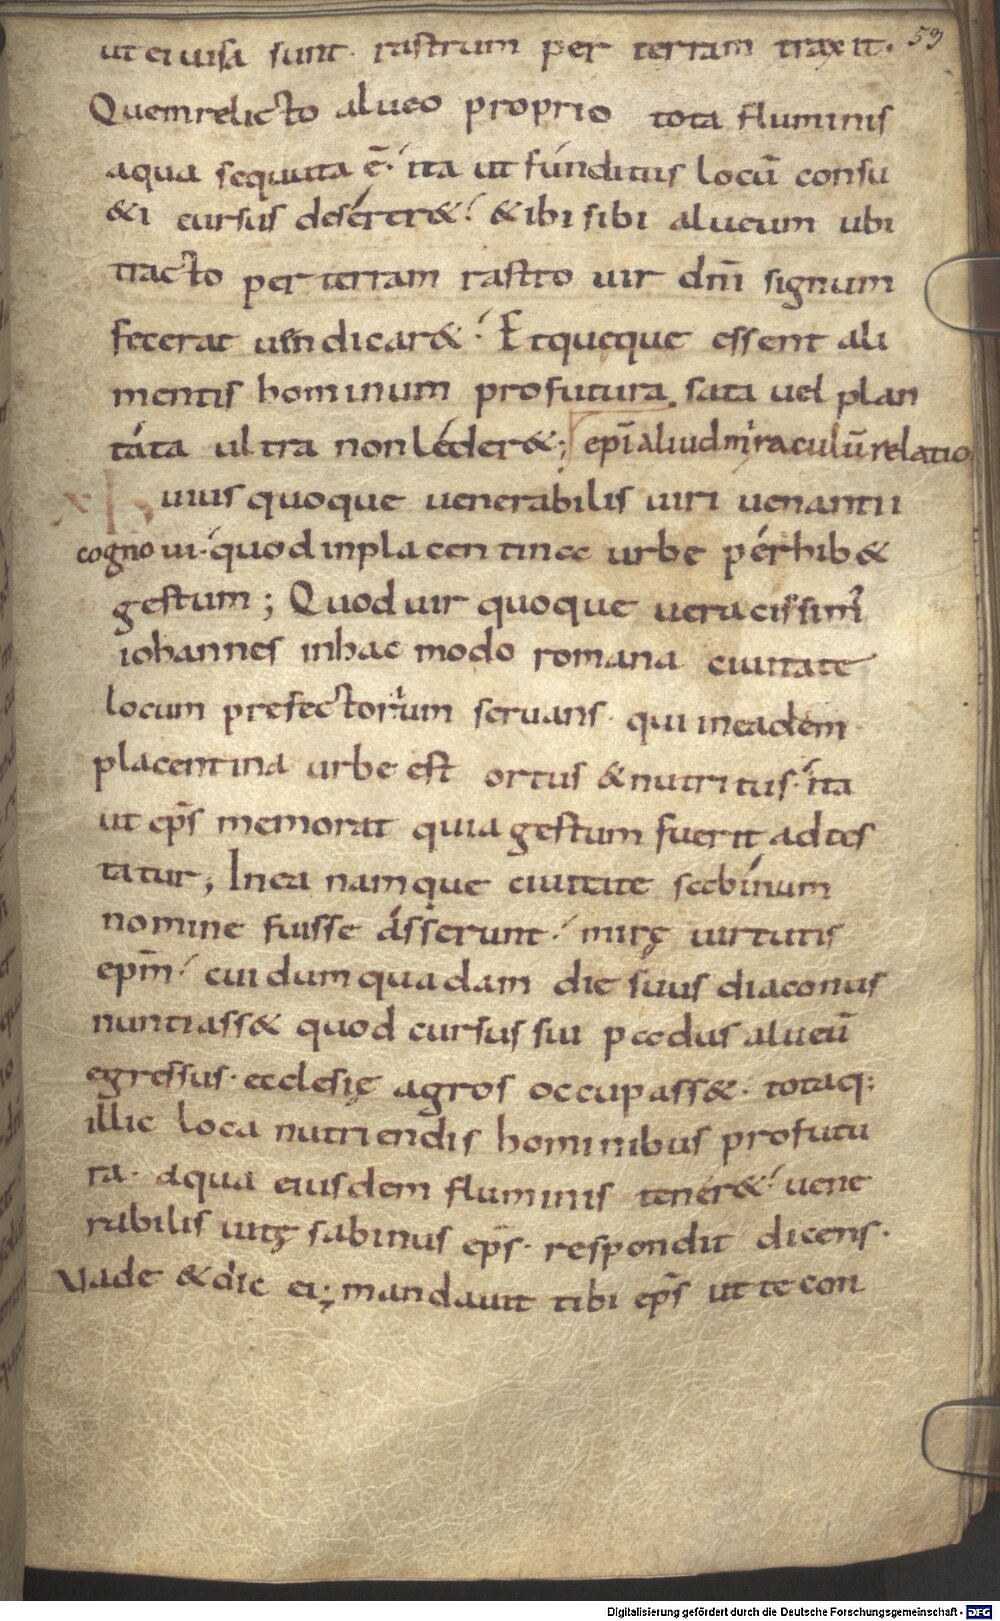 ut ei uisa sunt· rastrum per terram traxit· 59
Quem relicto alueo proprio tota fluminis
aqua sequuta ē· ita ut funditus locū consu
&i cursus deserer&· & ibi sibi alueum ubi
tracto per terram rastro uir dn̄i signum
fecerat uendicar&· Et queque essent ali
mentis hominum profutura sata uel plan
tata ultra non lęder&; ep̄i aliud miraculū relatio
XI huius quoque uenerabilis uiri uenantii
cognoui· quod in placentinae urbe perhib&
gestum; Quod uir quoque ueracissim'
iohannes in hac modo romana ciuitate
locum prefectorum seruans· qui in eadem
placentina urbe est ortus & nutritus· ita
ut ep̄s memorat quia gestum fuerit adtes
tatur; In ea namque ciuitate sabinum
nomine fuisse asserunt· mirę uirtutis
ep̄m· cui dum quadam die suus diaconus
nuntiass& quod cursus sui padus alueū
egressus· ecclesię agros occupass&· totaq;
illic loca nutriendis hominibus profutu
ra· aqua eiusdem fluminis tener&· uene
rabilis uitę sabinus ep̄s· respondit dicens·
Vade & dic ei; mandauit tibi ep̄s ut te con
Digitalisierung gefördert durch die Deutsche Forschungsgemeinschaft - DFG